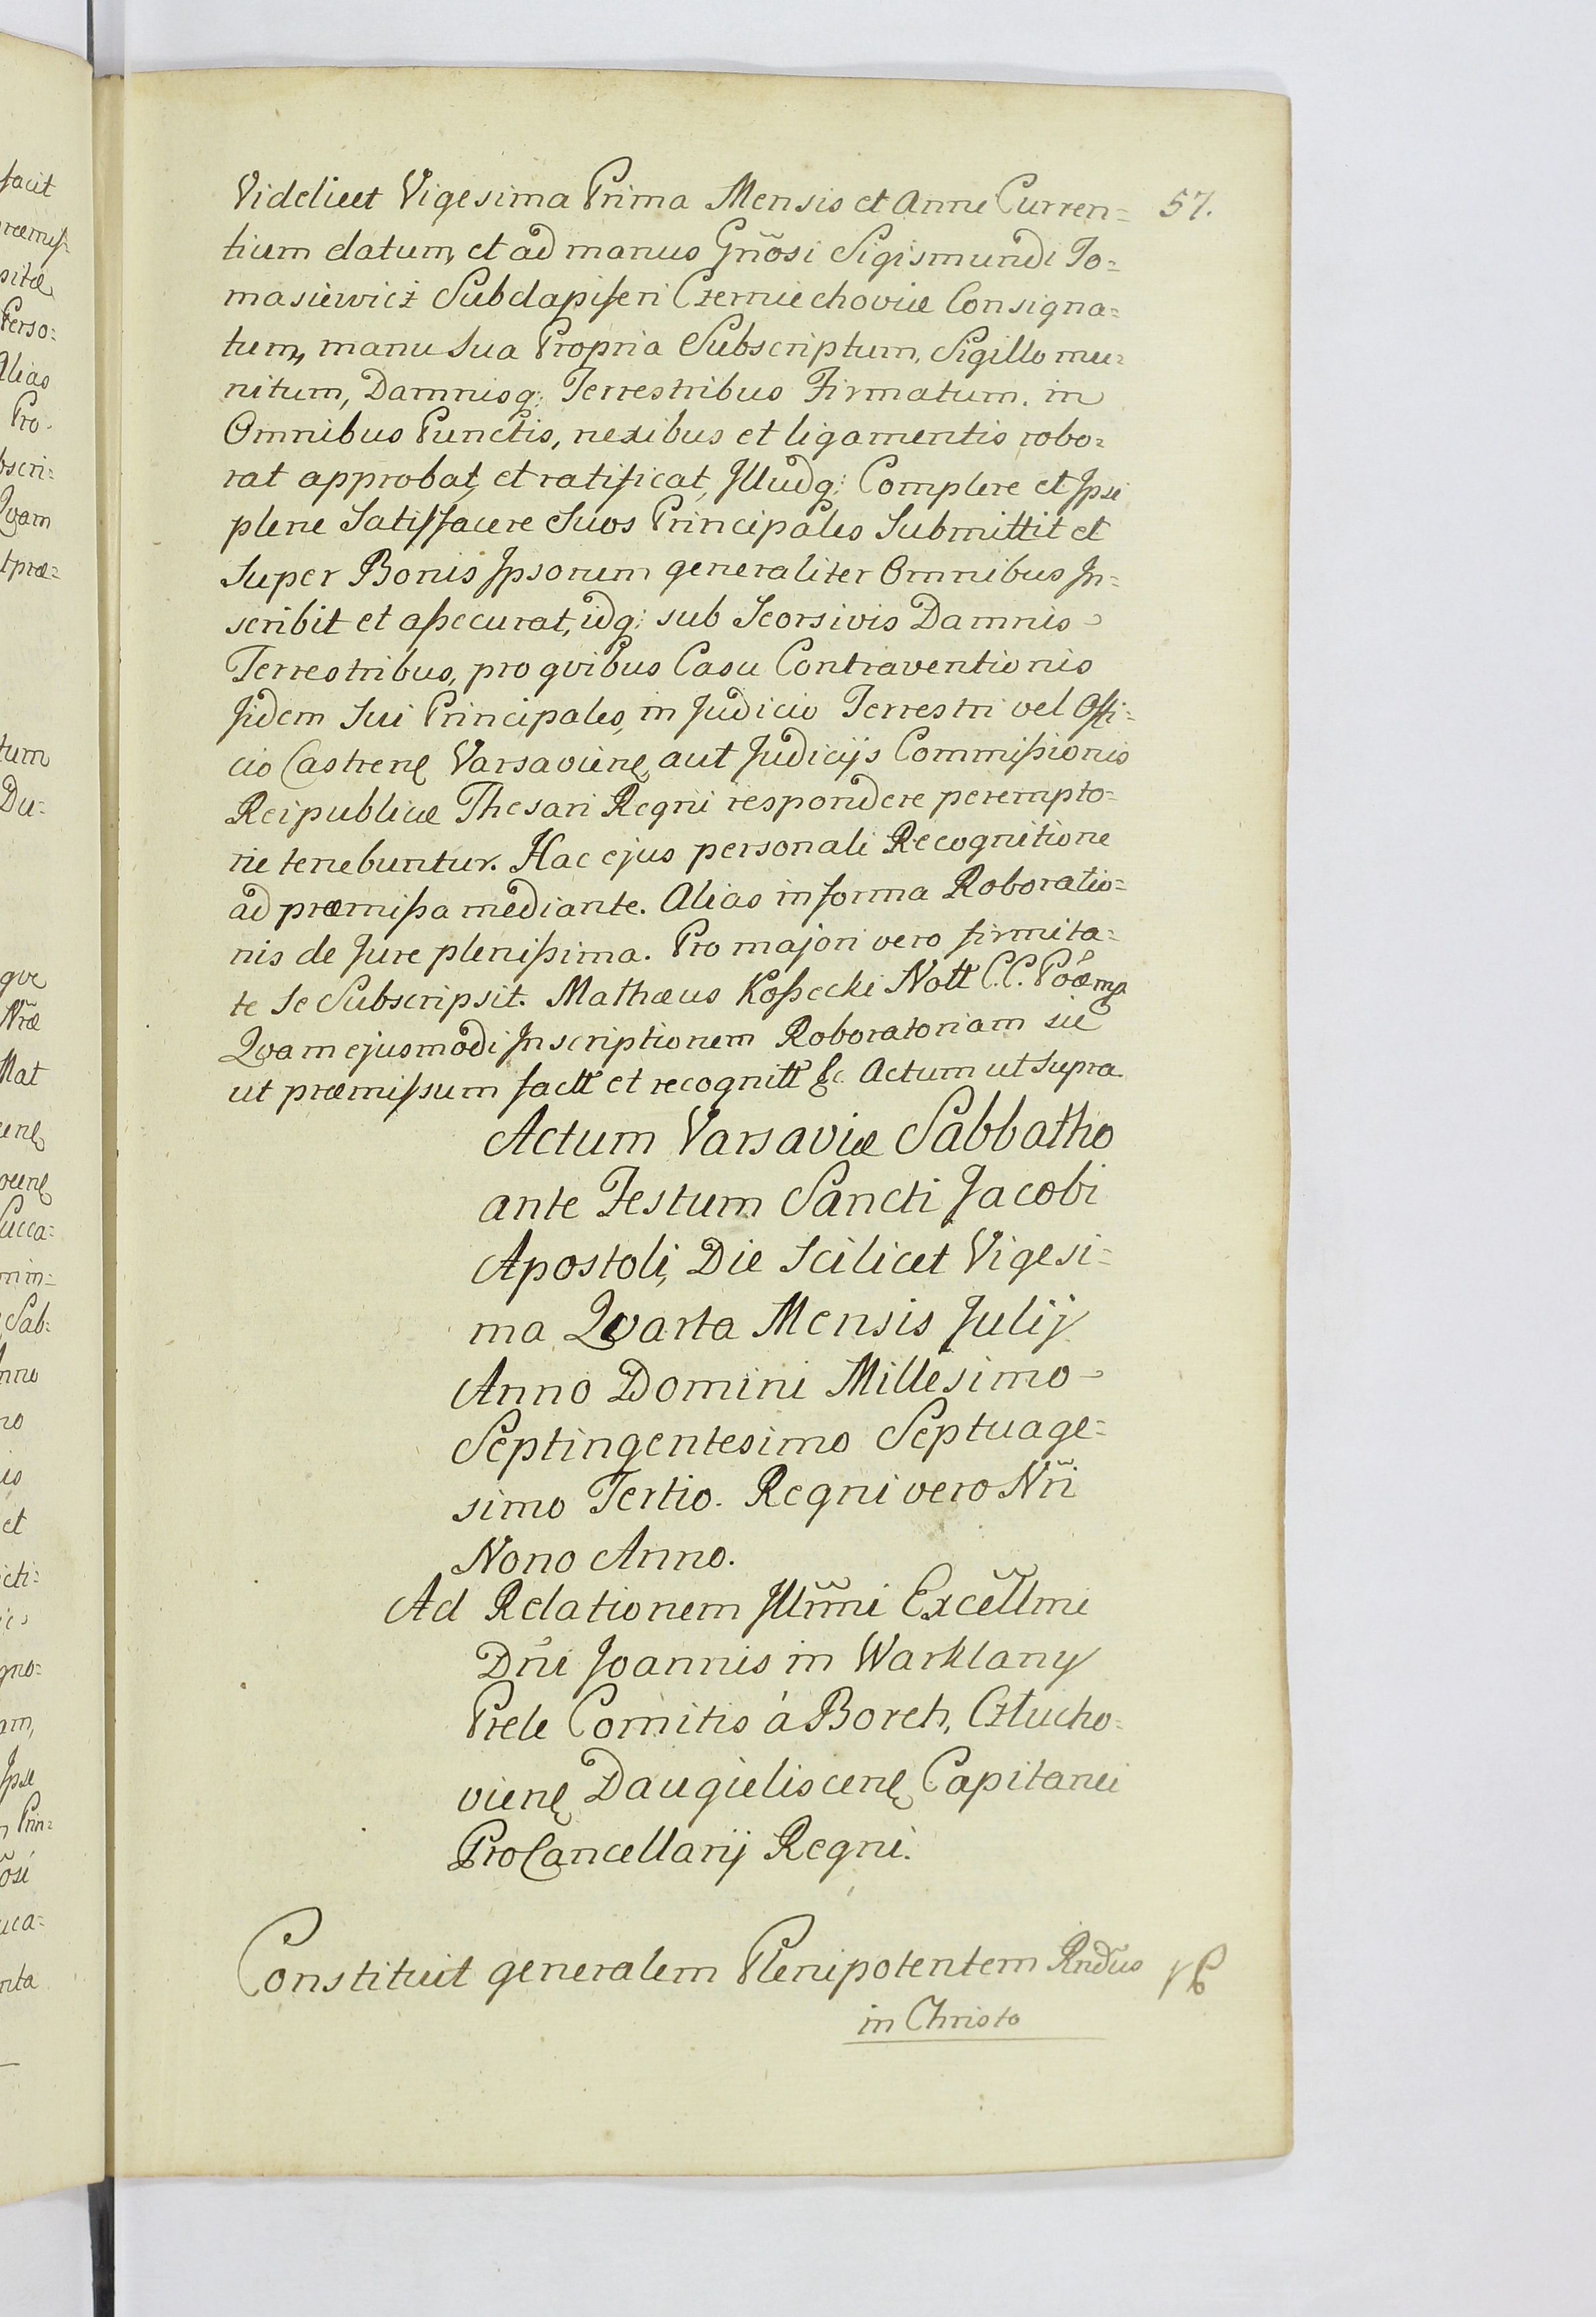 Videlicet Vigesima Prima Mensis et Anni Curren= 57.
tium datum, et ad manus Gñosi Sigismundi To=
masiewicz Subdapiferi Czerniechoviæ Consigna=
tum, manu sua Propria Subscriptum, Sigillo mu=
nitum, Damnisq: Terrestribus Firmatum. in
Omnibus Punctis, nexibus et ligamentis robo=
rat approbat, et ratificat, Illudq: Complere et Ipsi
plene Satisfacere Suos Principales Submittit et
Super Bonis Ipsorum generaliter Omnibus In=
scribit et aßecurat, idq: sub Seorsivis Damnis
Terrestribus, pro qvibus Casu Contraventionis
Iidem Sui Principales, in Judicio Terrestri vel Offi=
cio Castrenę Varsavienę aut Judicijs Commißionis
Reipublicæ Thesari Regni respondere perempto=
rie tenebuntur. Hac ejus personali Recognitione
ad præmißa mediante. Alias in forma Roboratio=
nis de Jure plenißima. Pro majori vero firmita=
te Se Subscripsit. Mathæus Koßecki Nott C.C.
Qvam ejusmodi Inscriptionem Roboratoriam sic
ut præmissum factt et recognitt &c. Actum ut Supra
Actum Varsaviæ Sabbatho
ante Festum Sancti Jacobi
Apostoli, Die Scilicet Vigesi=
ma Qvarta Mensis Julij
Anno Domini Millesimo
Septingentesimo Septuage=
simo Tertio. Regni vero Nr̃i
Nono Anno.
Ad Relationem Illm̃i Excell̃mi
Dñi Joannis in Warklany
Prele Comitis à Borch, Człucho=
vienę Daugieliscenę Capitanei
ProCancellarij Regni.
Constituit generalem Plenipotentem Rnd̃us
in Christo